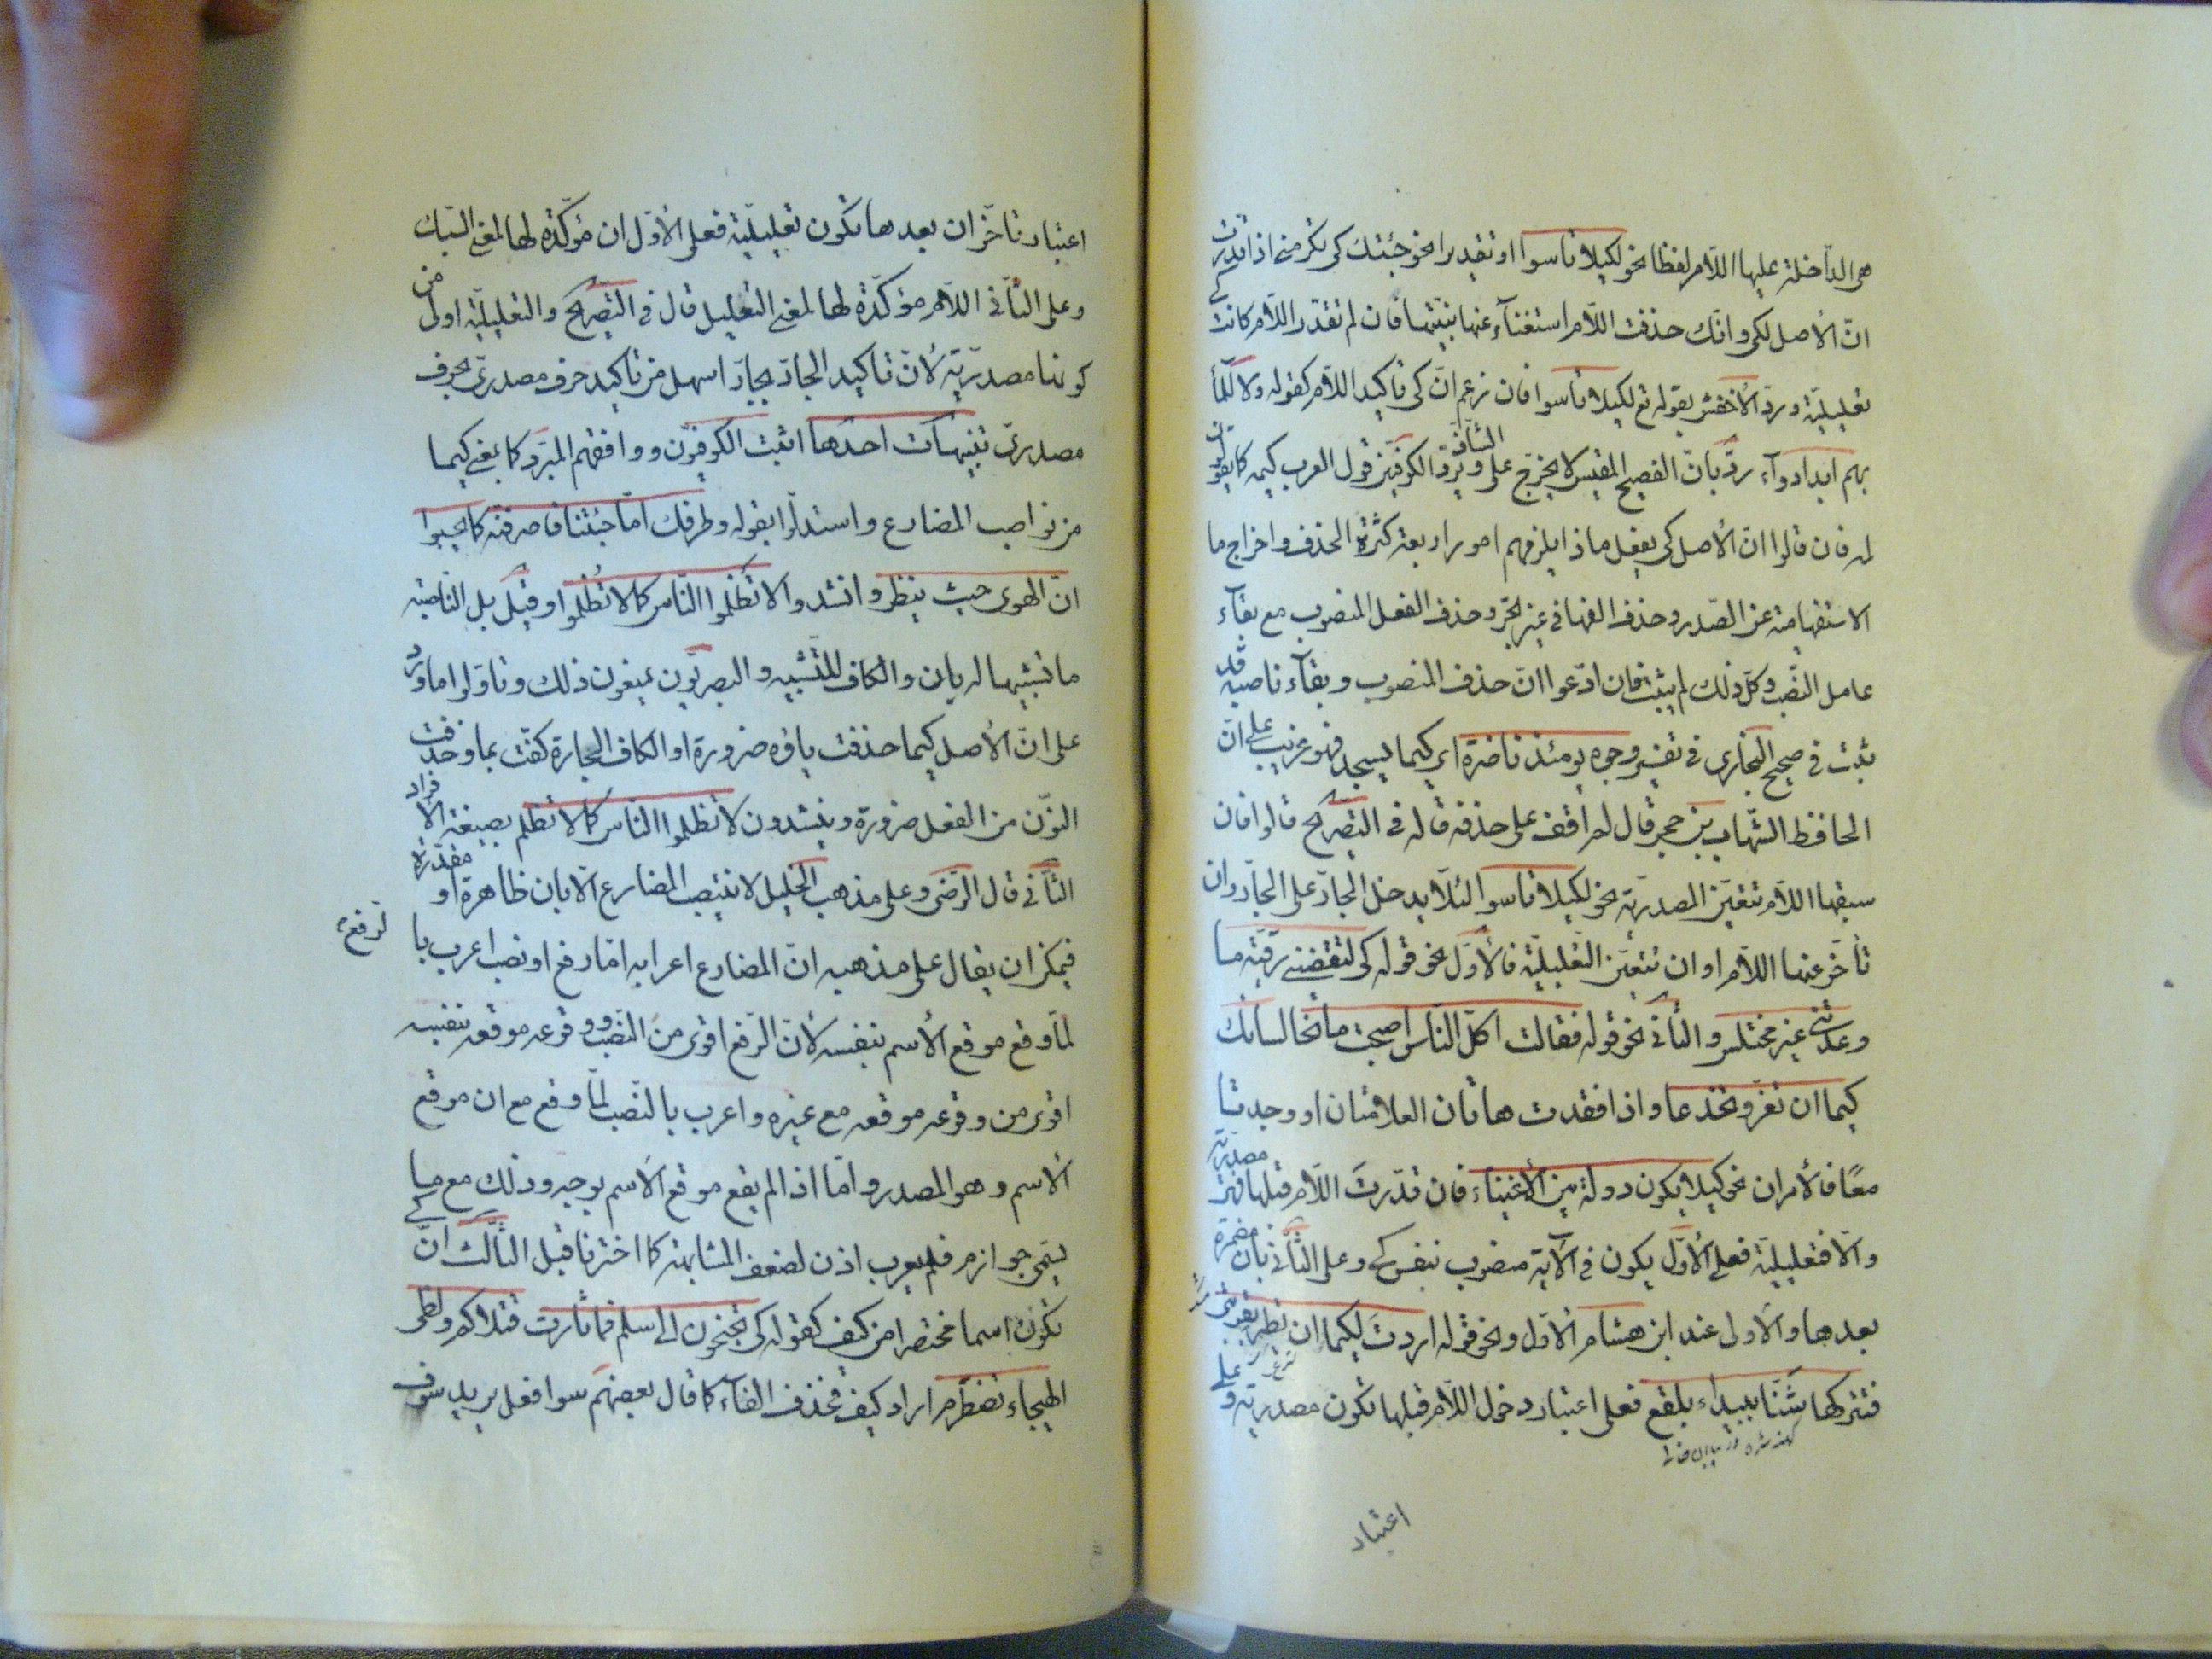 هى الداخلة عليها اللام لفظا نحو لكيلا تاسوا او تقديرا نحو جئتك كى تكرمنى اذا قدرت
انّ الأصل لكى وانّك حذفت اللام استغناء عنها بنيّتها فان لم تقدّر اللام كانت
تعليليّة وردّ الأخفش بقوله تع لكيلا تاسوا فان زعم انّ كى تاكيد اللام كقوله ولا للما
بهم ابدا دواء ردّ بانّ الفصيح المقيس لا يخرّج على الشاذّ ويردّ الكوفيّين قول العرب كيمه كما يقولون
لمه فان قالوا انّ الأصل كى يفعل ماذا يلزمهم امور اربعة كثرة الحذف واخراج ما
الاستفهامية عن الصّدر وحذف الفها فى غير الجرّ وحذف الفعل المنصوب مع بقاء
عامل النصب وكلّ ذلك لم يثبت فان ادّعوا انّ حذف المنصوب وبقاء ناصبه قد
ثبت فى صحيح البخارى فى تفسير وجوه يومئذ ناضرة اى كيما يسجد فهو غريب على انّ
الحافظ الشّهاب بن حجر قال لم اقف على حذفه قاله فى التصريح قالوا فان
سبقها اللام تتعيّن المصدريّة نحو لكيلا تاسوا لئلا يدخل الجارّ على الجارّ وان
تأخّر عنها اللام او ان تتعيّن التّعليليّة فالأوّل نحو قوله كى لتقضينى رقيّة ما
وعدتنى غير مختلس والثانى نحو قوله فقالت اكلّ الناس اصبحت مانحا لسانك
كيما ان تغرّ وتخدعا واذا فقدت هاتان العلامتان او وجدتا
معًا فالأمران نحو كيلا يكون دولة بين الأغنياء فان قدّرت اللام قبلها فهى مصدريّة
والّا فتعليليّة فعلى الأوّل يكون فى الآية منصوب بنفس كى وعلى الثّانى بان مضمرة
بعدها والأولى عند ابن هشام الأوّل ونحو قوله اردت لكيما ان تطير بقربتى
فتتركها شنّا ببيداء بلقع فعلى اعتبار دخول اللام قبلها تكون مصدريّة وعلى
اعتبار
اعتبار تاخّر ان بعدها تكون تعليليّة فعلى الأوّل ان مؤكّدة لها لمعنى السّبك
وعلى الثّانى اللام مؤكّدة لها لمعنى التعليل قال فى التصريح والتعليليّة اولى من
كونها مصدريّة لأنّ تاكيد الجارّ بجارّ اسهل من تاكيد حرف مصدرىّ بحرف
مصدرىّ تنبيهات احدها اثبت الكوفيّون ووافقهم المبرّد كما بمعنى كيما
من نواصب المضارع واستدلّوا بقوله وطرفك امّا جئتنا فاصرفنّه كما يحسبوا
انّ الهوى حيث ينظر وانشدوا لا تظلموا النّاس كما لا تظلموا وقيل بل الناصبة
ما تشبيها لها بان والكاف للتشبيه والبصريّون يمنعون ذلك وتاوّلوا ما ورد
على انّ الأصل كيما حذفت ياؤه ضرورة او الكاف الجارة كفّت بما وحذفت
النوّن من الفعل ضرورة وينشدون لا تظلموا الناس كما لا تظلم بصيغة الافراد
الثّانى قال الرّضى وعلى مذهب الخليل لا ينتصب المضارع الّا بان ظاهرة او مقدّرة
فيمكن ان يقال على مذهبه انّ المضارع اعرابه امّا رفع او نصب اعرب بالرفع
لمّا وقع موقع الأسم بنفسه لأنّ الرّفع اقوى من النّصب ووقوعه موقعه بنفسه
اقوى من وقوعه موقعه مع غيره واعرب بالنّصب لمّا وقع مع ان موقع
الاسم وهو المصدر وامّا اذا لم يقع موقع الاسم بوجه وذلك مع ما
يسمّى جوازم فلم يعرب اذن لضعف المشابهة كما اخترنا قبل الثّالث انّ كى
تكون اسما مختصرا من كيف كقوله كى تجنحون الى سلم وما ثارت قتلاكم ولظى
الهيجاء تضطرم اراد كيف فحذف الفاء كما قال بعضهم سوا فعل يريد سوف